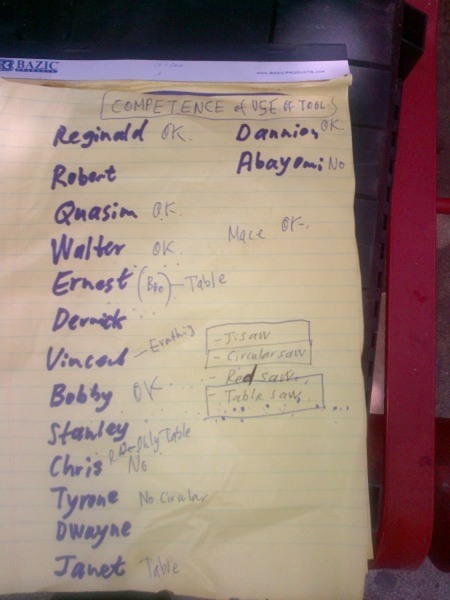 BAZIC
PRODUCTS
www.BAZICPRODUCTS.com
COMPETENCE of USE OF TOOLS
Reginald OK.
Robert
Quasim OK.
Walter OK.
Ernest (Bro) - Table
Derrick
Vincent
Bobby OK
Stanley
Chris No
Only Table
Tyrone No Circular
Dwayne
Janet Table
Dannion OK
Abayomi No
Mace OK.
- Jisaw
- Circular saw
- Red saw.
- Table saw.